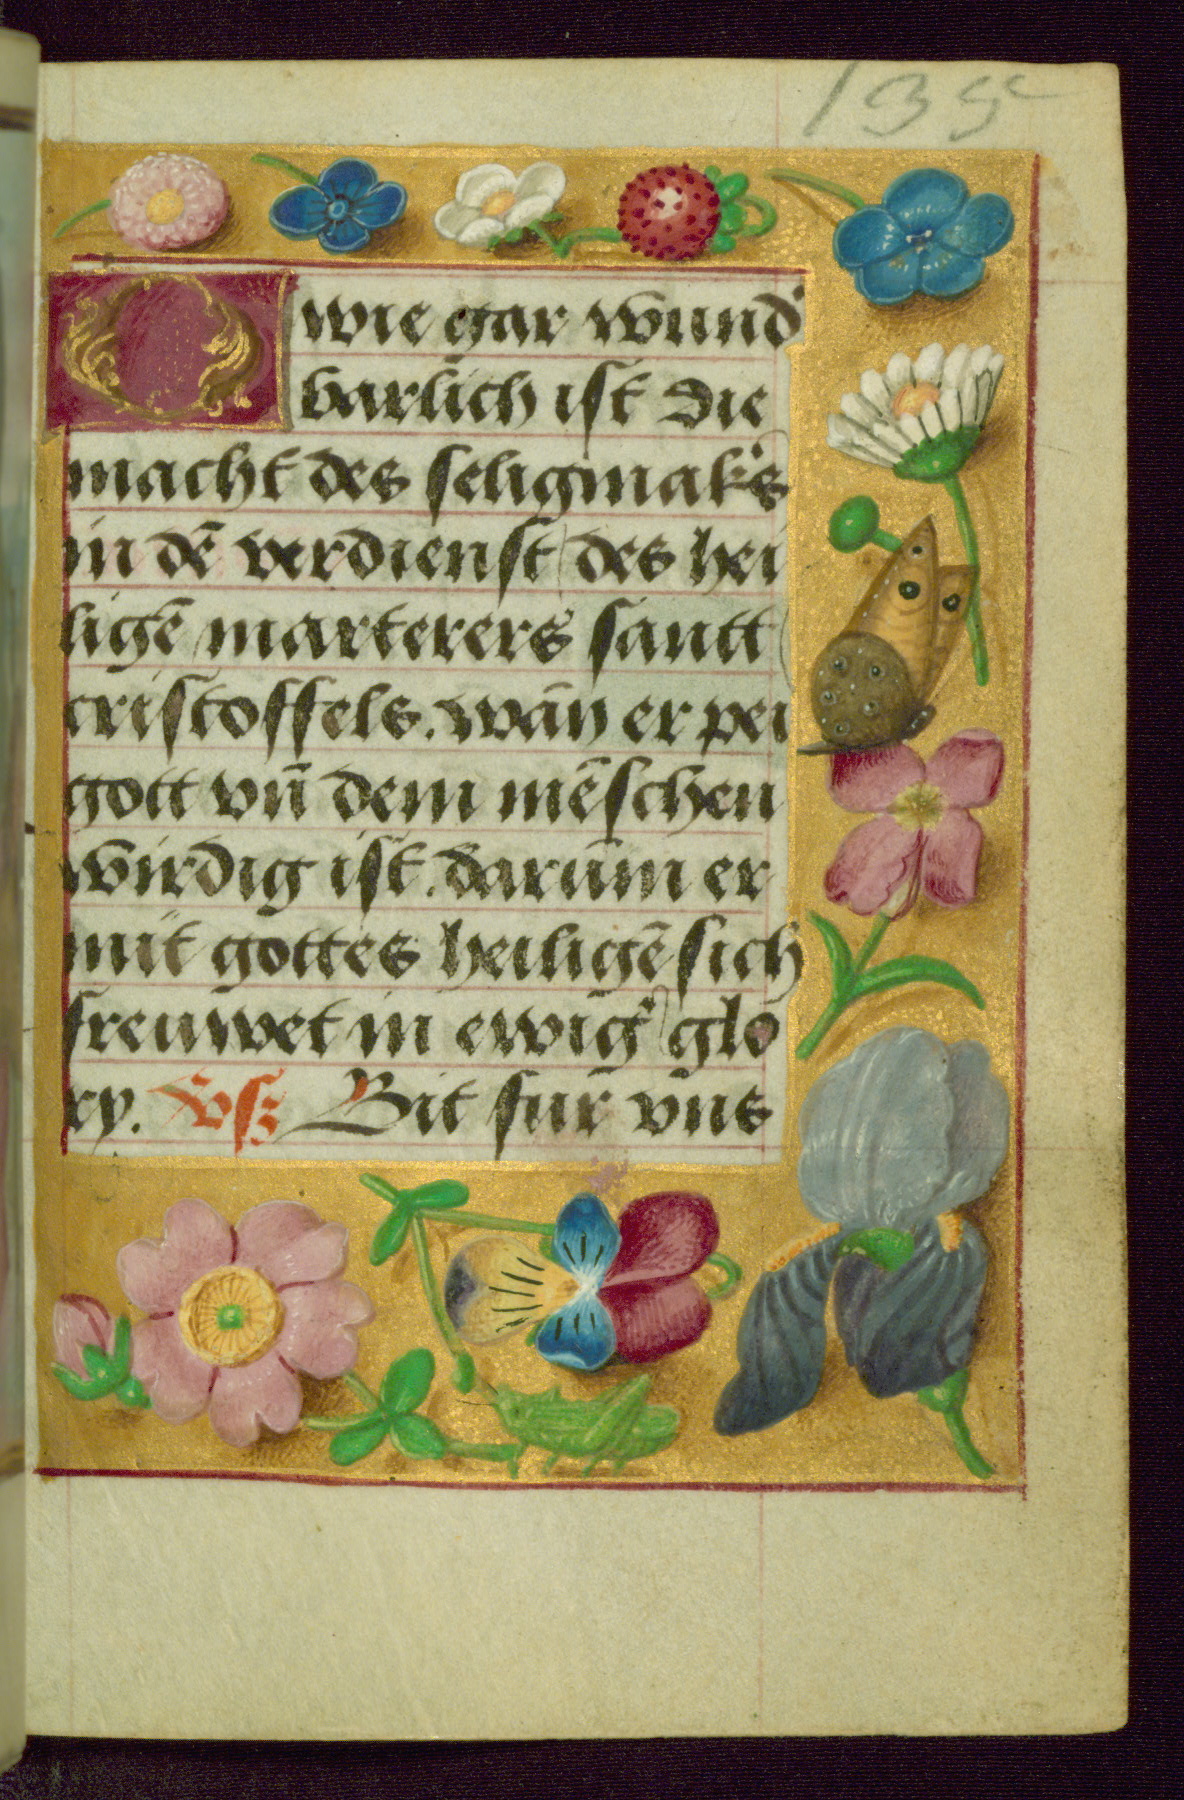 135c
O wie gar wund'
barlich ist die
macht des seligmak's
in dē verdienst des hei
ligē marterers santt
cristoffels. wān er pei
gott vn̄ dem mēschen
wirdig ist. darūm er
mit gottes heiligē sich
freuwet in ewig' glo
ry. Vß Bit fur vns